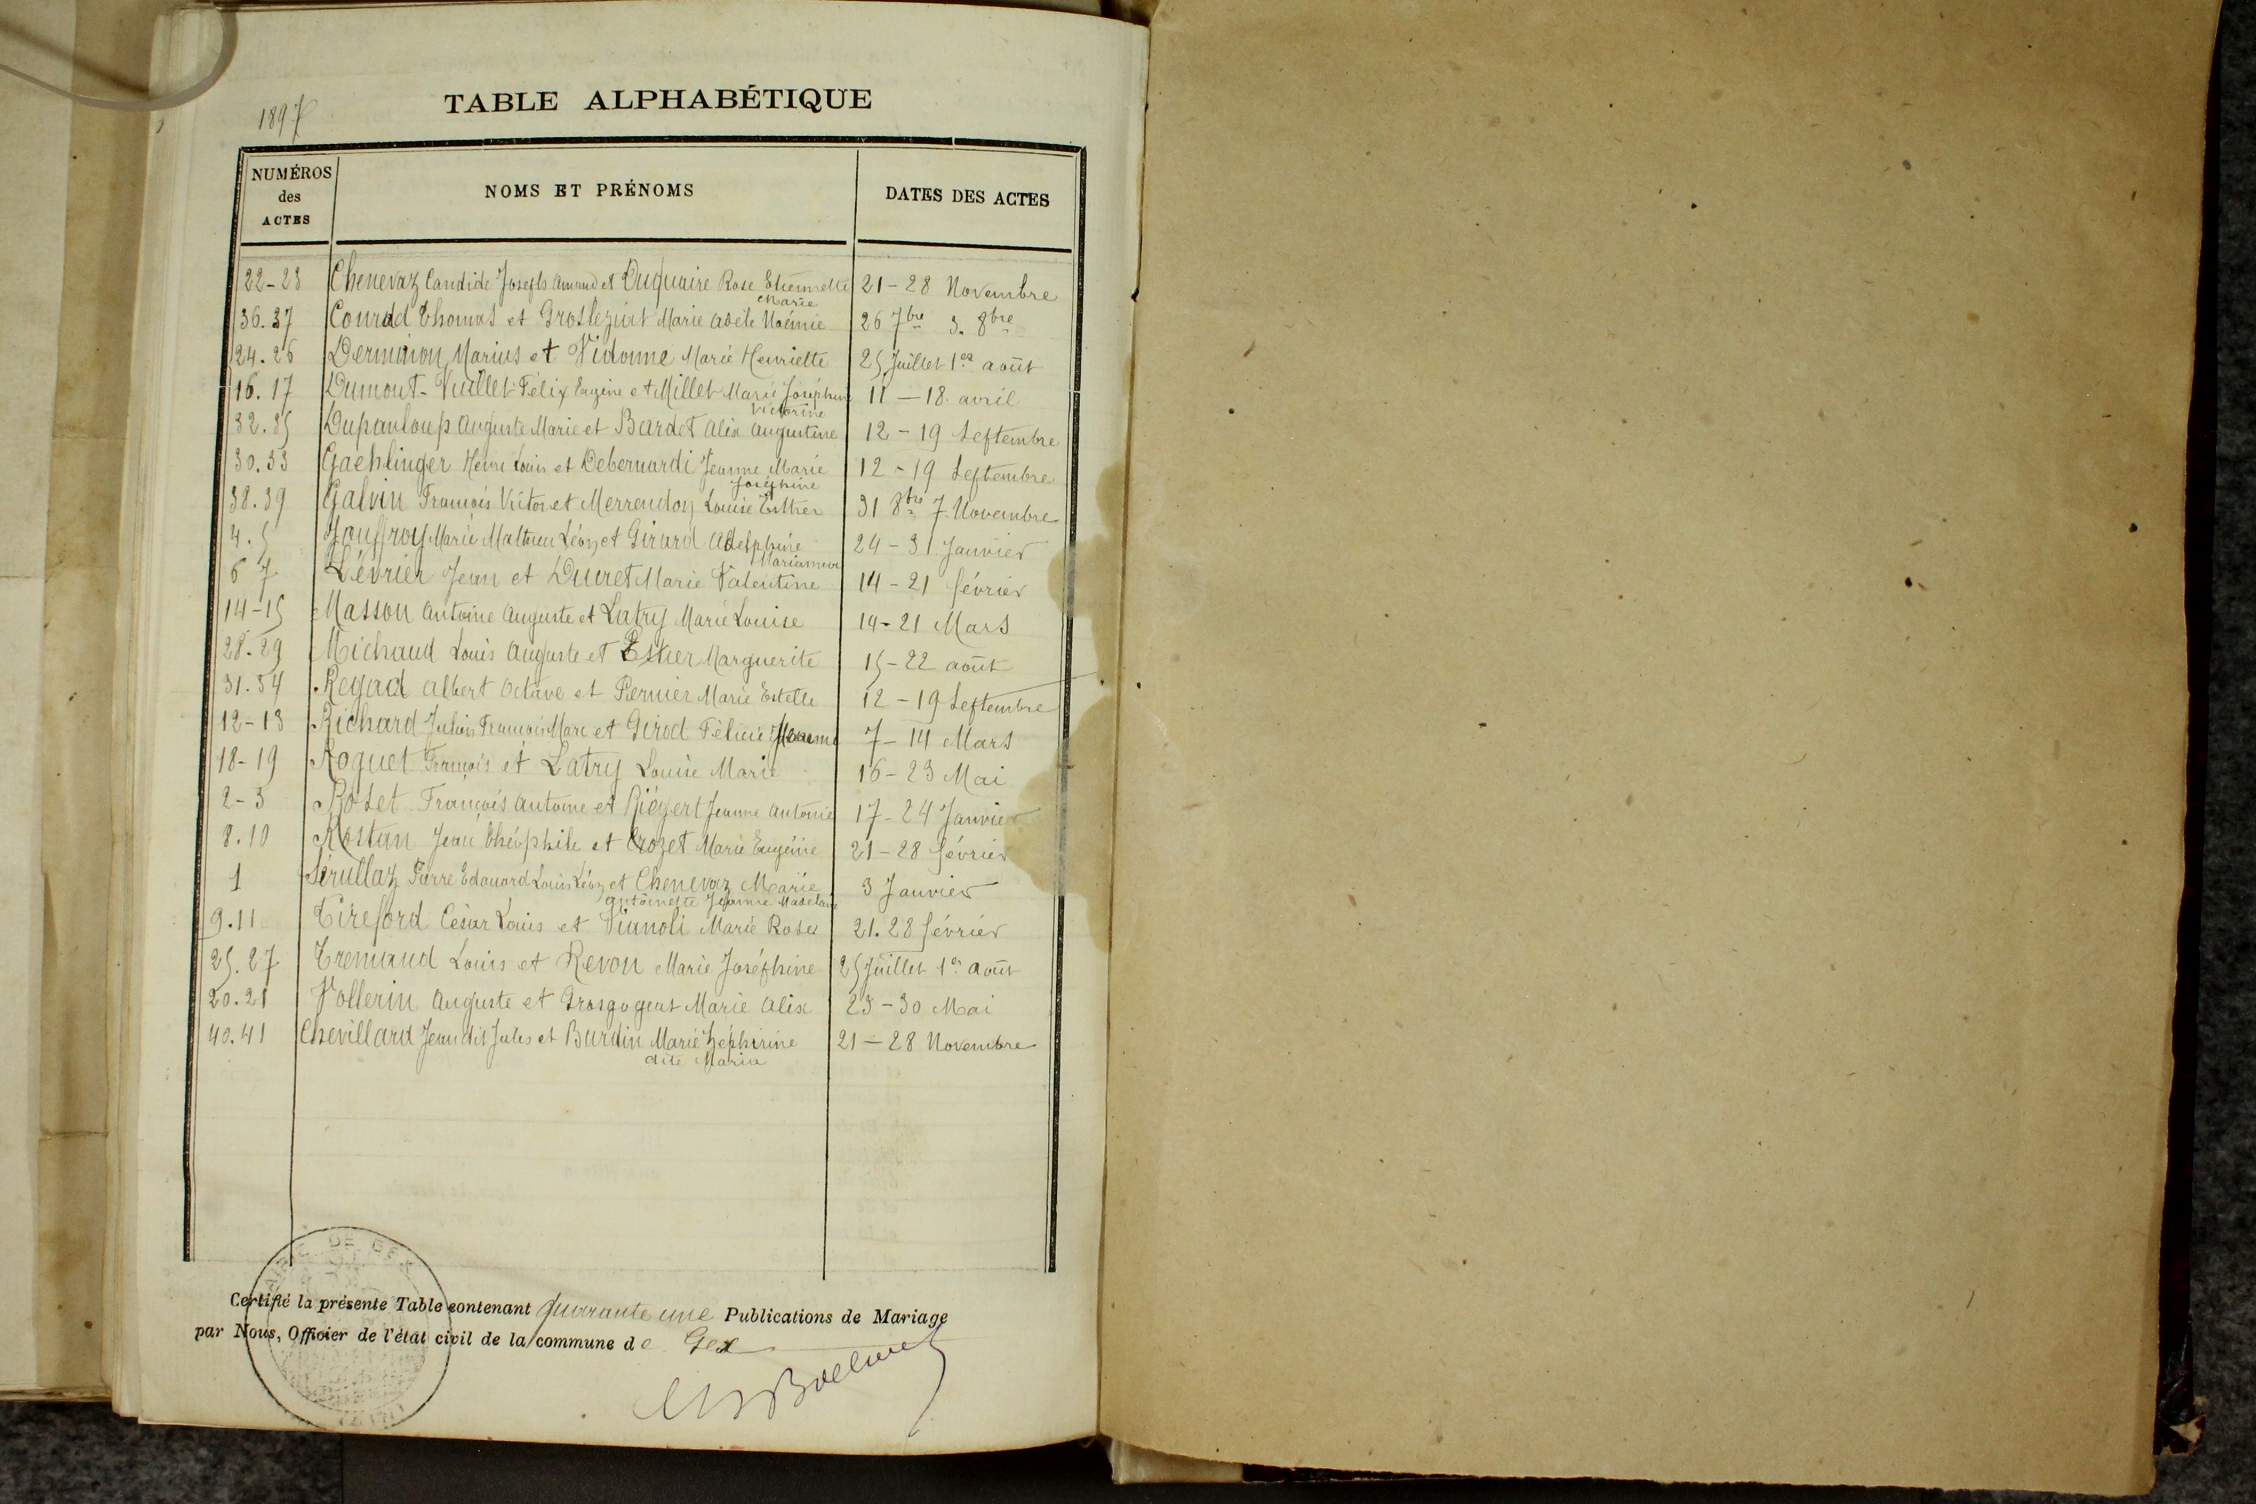 1897
TABLE ALPHABÉTIQUE
NUMÉROS des ACTES
NOMS ET PRÉNOMS
DATES DES ACTES
22-23 Chenevaz Candide Joseph Amand et Duquaire Rose Etiennette 21-28 Novembre
Marie
36.37 Courad Thomas et Marie Adèle Noémie 26 7bre 3. 8bre
24.26 Derminon Marius et Vidonne Marie Henriette 25 Juillet 1er août
16.17 Dumont-Vuillet Félix Eugène et Millet Marie Joséphine 11-18 avril
Victorine
32.35 Dupanloup Auguste Marie et Bardet Alix Augustine 12-19 Septembre
30.33 Gaehlinger Henri Louis et Debernardi Jeanne Marie 12-19 Septembre
Joséphine
38.39 Galvin François Victor et Merrendon Louise Esther 31 8bre 7 Novembre
4.5 Jouffroy Marie Mathieu Léon et Girard Adelphine 24-31 Janvier
6 7 Lévrier Jean et Ducret Marie Valentine 14-21 février
14-15 Masson Antoine Auguste et Latry Marie Louise 14-21 Mars
28.29 Michaud Louis Auguste et Marguerite 15-22 août
31.34 Regad Albert Octave et Pernier Marie Estelle 12-19 Septembre
12-13 Richard Julien François Marc et Girod Félicie 7-14 Mars
18-19 Roquet François et Latry Louise Marie 16-23 Mai
2-3 Rolet François Antoine et Jeanne Antonie 17-24 Janvier
8.10 Rostan Jean Théophile et Crozet Marie Eugénie 21-28 février
1 Sérullaz Pierre Edouard Louis Léon et Chenevaz Marie 3 Janvier
Antoinette Jeanne Madelaine
9.11 Tireford César Louis et Viunoli Marie Rose 21.28 février
25.27 Tremaud Louis et Revon Marie Joséphine 25 Juillet 1er août
20.21 Vollerin Auguste et Grosgogeat Marie Alix 23-30 Mai
40.41 Chevillard Jean dit Jules et Burdin Marie Zéphirine 21-28 Novembre
dite Maria
Certifié la présente Table contenant quarante une Publications de Mariage
par Nous, Officier de l'état civil de la commune de Gex
MAIRIE DE GEX